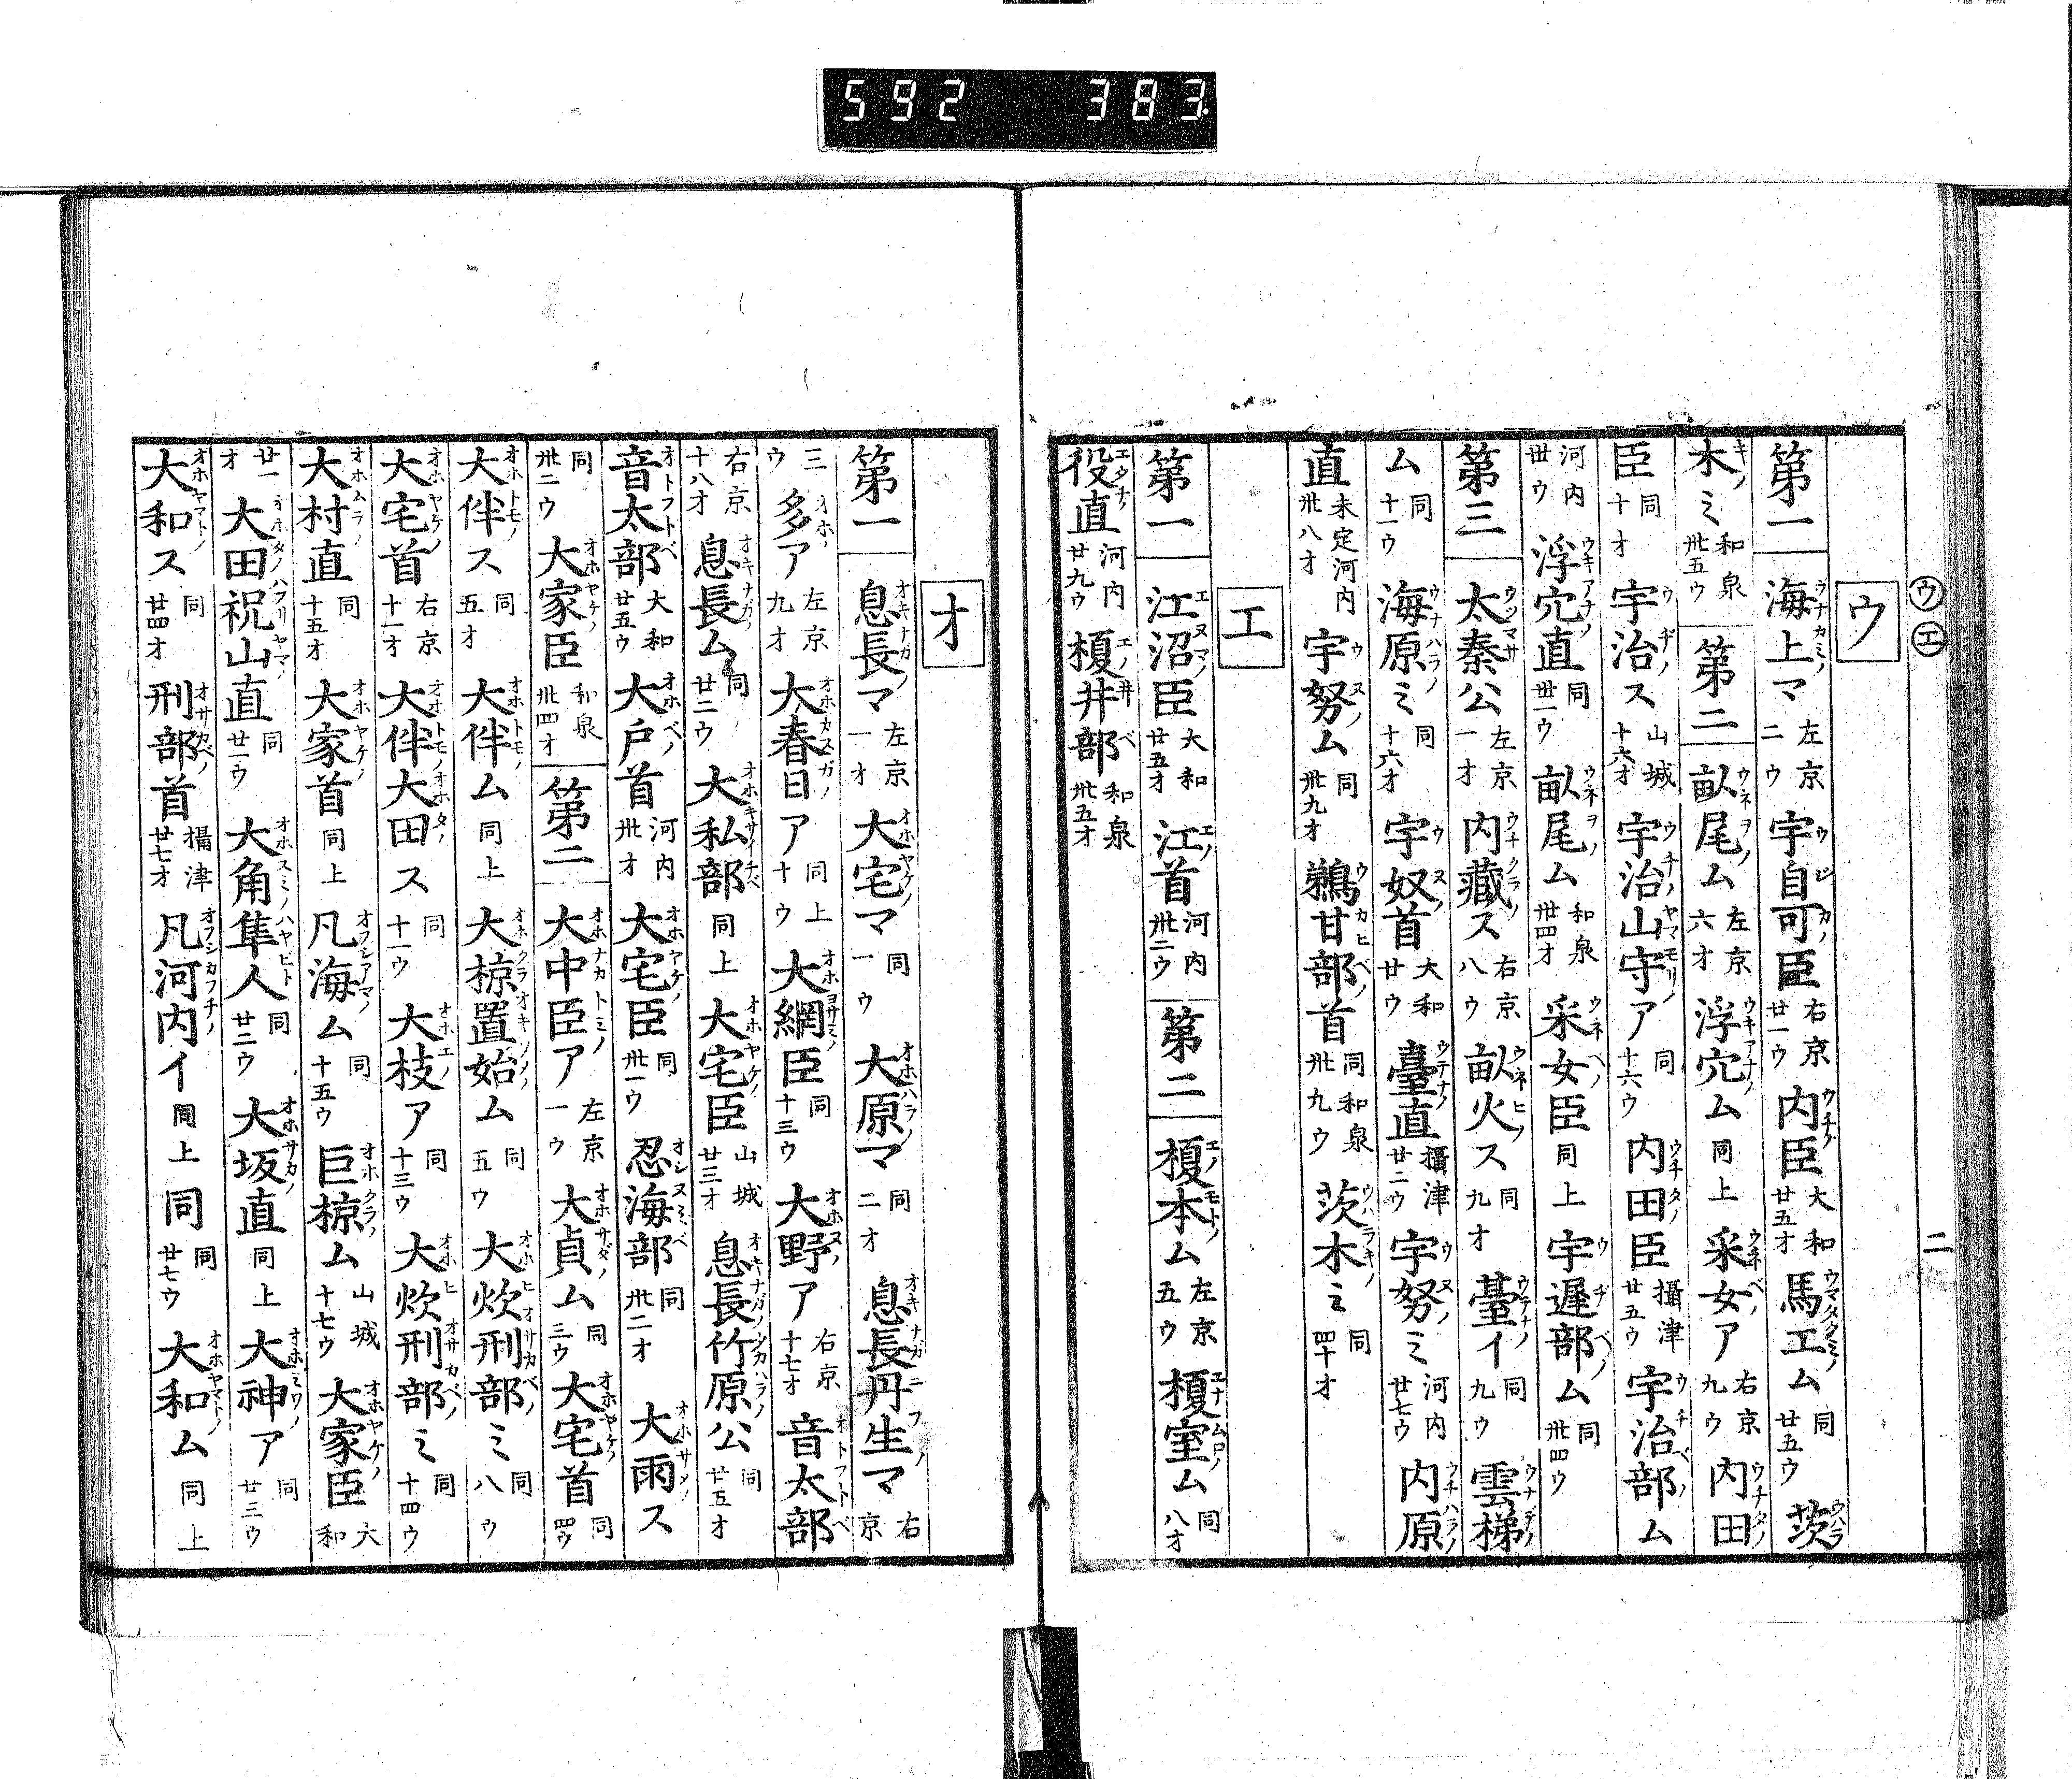 592 383.
㋒㋓ 二
ウ
第一 海上マ 左京二ウ 宇自可臣 右京廿一ウ 内臣 大和廿五オ 馬工ム 同廿五ウ 茨
木ミ 和泉卅五ウ 第二 畝尾ム 左京六オ 浮穴ム 同上 采女ア 右京九ウ 内田
臣 同十オ 宇治ス 山城十六オ 宇治山守ア 同十六ウ 内田臣 攝津廿五ウ 宇治部ム
河内丗ウ 浮穴直 同丗一ウ 畝尾ム 和泉卅四オ 采女臣 同上 宇遲部ム 同卅四ウ
第三 太秦公 左京一オ 内藏ス 右京八ウ 畝火ス 同九オ 臺イ 同九ウ 雲梯
ム 同十一ウ 海原ミ 同十六オ 宇奴首 大和廿ウ 臺直 攝津廿二ウ 宇努ミ 河内廿七ウ 内原
直 未定河内卅八オ 宇努ム 同卅九オ 鵜甘部首 同和泉卅九ウ 茨木ミ 同四十オ
エ
第一 江沼臣 大和廿五オ 江首 河内卅二ウ 第二 榎本ム 左京五ウ 榎室ム 同八オ
役直 河内廿九ウ 榎井部 和泉卅五オ
オ
第一 息長マ 左京一オ 大宅マ 同一ウ 大原マ 同二オ 息長丹生マ 右京
三ウ 多ア 左京九オ 大春日ア 同上十ウ 大網臣 同十三ウ 大野ア 右京十七オ 音太部
右京十八オ 息長ム 同廿二ウ 大私部 同上 大宅臣 山城廿三オ 息長竹原公 同廿五オ
音太部 大和廿五ウ 大戶首 河内卅オ 大宅臣 同卅一ウ 忍海部 同卅二オ 大雨ス
同卅二ウ 大家臣 和泉卅四オ 第二 大中臣ア 左京一ウ 大貞ム 同三ウ 大宅首 同四ウ
大伴ス 同五オ 大伴ム 同上 大椋置始ム 同五ウ 大炊刑部ミ 同八ウ
大宅首 右京十一オ 大伴大田ス 同十一ウ 大枝ア 同十三ウ 大炊刑部ミ 同十四ウ
大村直 同十五オ 大家首 同上 凡海ム 同十五ウ 巨椋ム 山城十七ウ 大家臣 大和
廿一オ 大田祝山直 同廿一ウ 大角隼人 同廿二ウ 大坂直 同上 大神ア 同廿三ウ
大和ス 同廿四オ 刑部首 攝津廿七オ 凡河内イ 同上 同 同廿七ウ 大和ム 同上